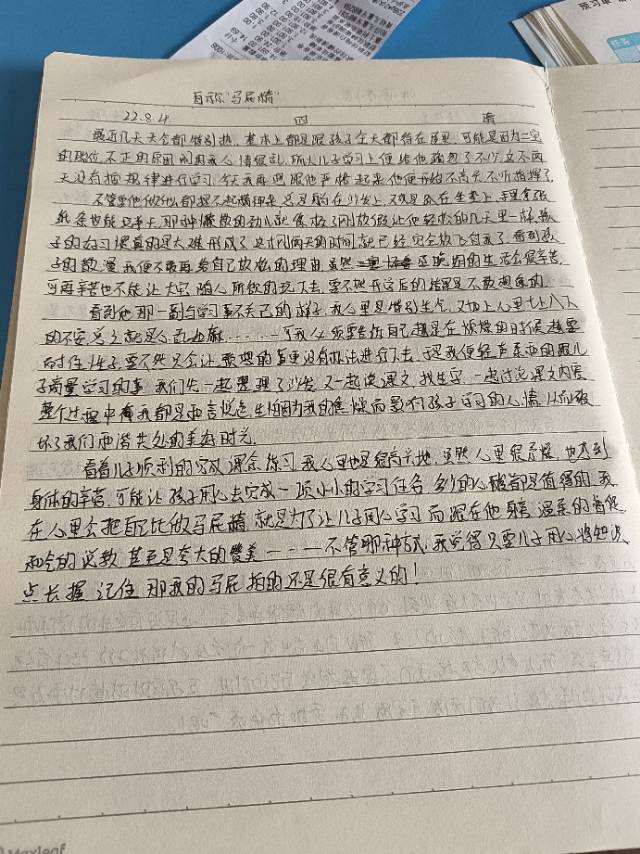 自称"马屁精"
22.8.4 四 晴
最近几天天气都特别热,基本上都是跟孩子全天都待在屋里,可能是因为二宝
的原因,我心情很乱,所以儿子学习上便给他疏忽了不少,立不两
天没有按规律进行学习,今天我再照顾他严格起来他便开始不当先不听指挥了
不管里他做什么都提不起精神来,总是趴在沙发上,不然是趴在坐垫上,拿张
纸条也能玩半天,那种懒散的动儿就像极了刚放假让他轻松的几天里一样,孩
子的好习惯真的是太难形成了,这才刚两天的时间就已经完全放飞自我了,看到孩
子的散漫我便不敢再给自己放松的理由,虽然 照顾的生活会很辛苦,
可再辛苦也不能让大宝随心所欲的玩下去,要不然开学后的结果是不敢想像的
看到他那一副与学习事不关己的样子,我心里是特别生气,又加上心里七上八下
的不安,总之就是心乱如麻......可我必须要告诉自己越是在烦燥的时候越要
耐住性子,要不然只会让要想的事更没有办法进行下去,于是我便轻声柔和的跟儿
子商量学习的事,我们先一起整理了沙发,又一起读课文,找生字,一起讨论课文内容
整个过程中 我都是和言悦色生怕因为我的焦燥而影响孩子学习的心情,从而破
坏了我们两潜共处的美好时光.
看着儿子顺利的完成课余练习,我心里也是很高兴地,虽然心里很烦燥,也感到
身体的辛苦,可能让孩子用心去完成一项小小的学习任务,多少的心酸都是值得的,我
在心里会把自己比做马屁精,就是为了让儿子用心学习而跟在他身旁,温柔的督促
和气的说教,甚至是夸大的赞美————不管哪种方式,我觉得只要儿子用心将知识
点长握,记住,那我的马屁拍的还是很有意义的!
Maxleaf